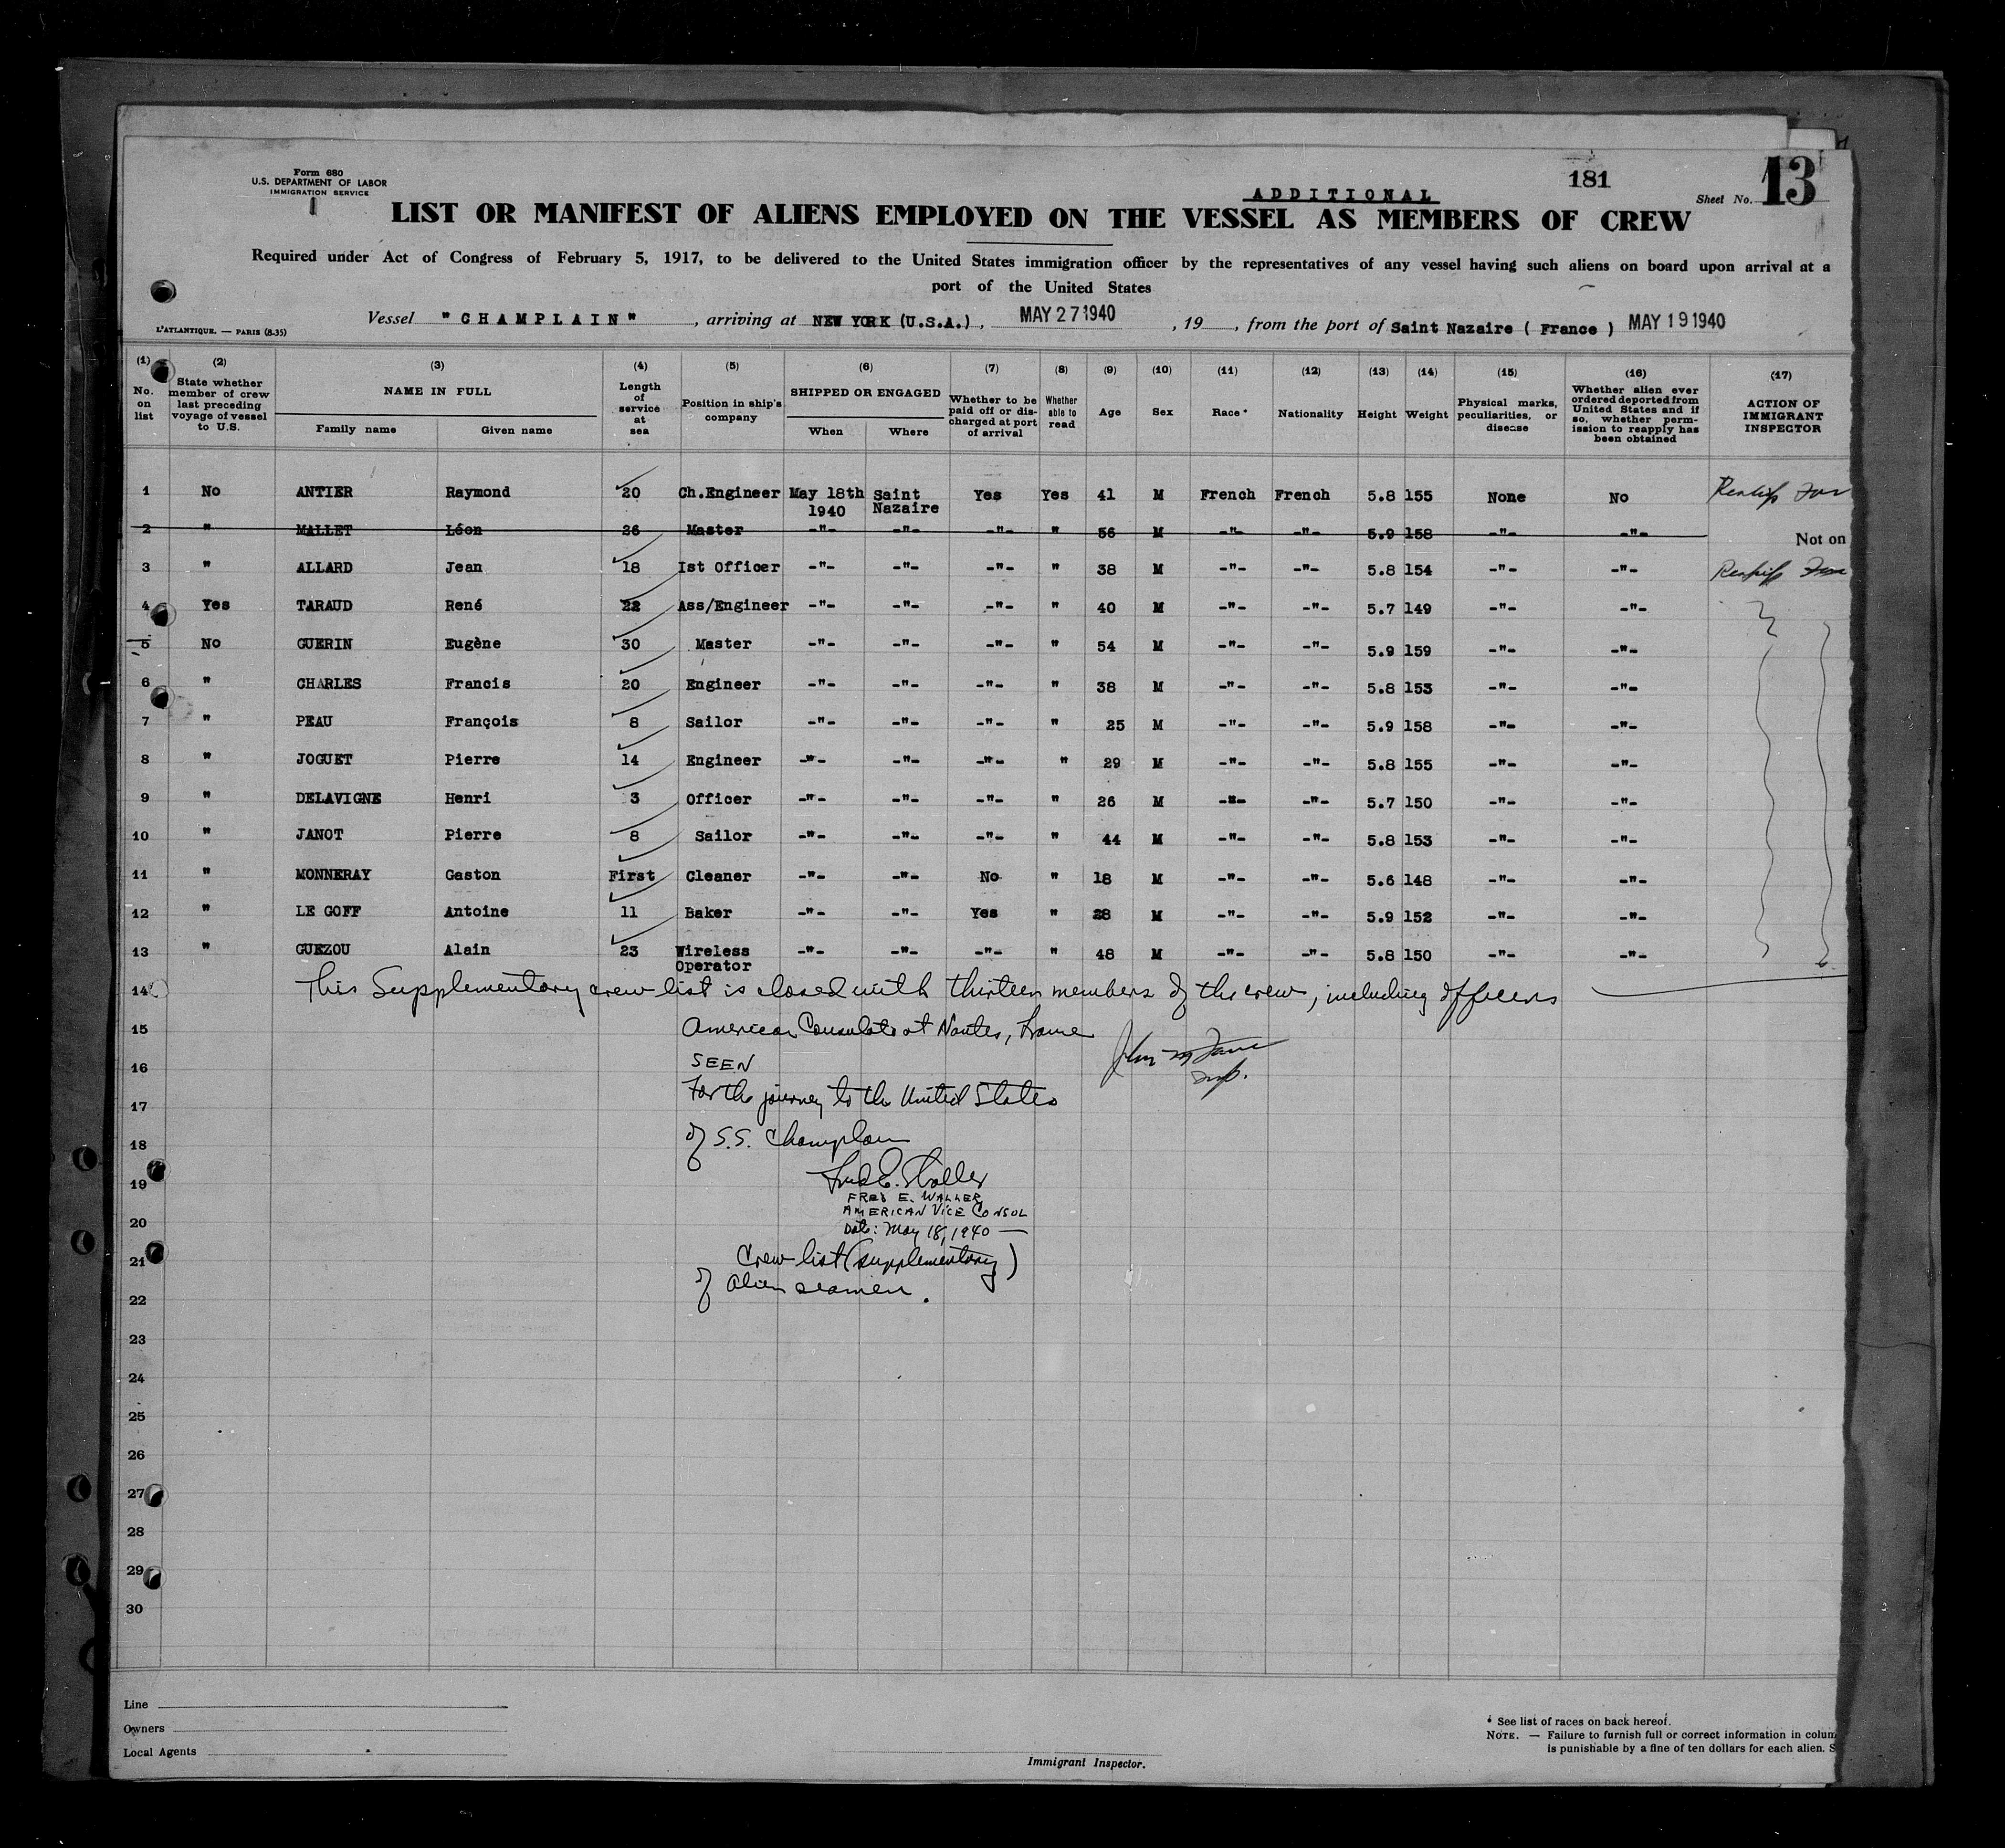 Form 680
U.S. DEPARTMENT OF LABOR
IMMIGRATION SERVICE
181
Sheet No. 13
ADDITIONAL
LIST OR MANIFEST OF ALIENS EMPLOYED ON THE VESSEL AS MEMBERS OF CREW
Required under Act of Congress of February 5, 1917, to be delivered to the United States immigration officer by the representatives of any vessel having such aliens on board upon arrival at a
port of the United States
L'ATLANTIQUE. — PARIS (8-35)
Vessel "CHAMPLAIN", arriving at NEW YORK (U.S.A.), MAY 27 1940, 19, from the port of Saint Nazaire ( France ) MAY 19 1940
(1) No. on list
(2) State whether member of crew last preceding voyage of vessel to U.S.
(3) NAME IN FULL
Family name Given name
(4) Length of service at sea
(5) Position in ship's company
(6) SHIPPED OR ENGAGED
When Where
(7) Whether to be paid off or discharged at port of arrival
(8) Whether able to read
(9) Age
(10) Sex
(11) Race *
(12) Nationality
(13) Height
(14) Weight
(15) Physical marks, peculiarities, or disease
(16) Whether alien ever ordered deported from United States and if so, whether permission to reapply has been obtained
(17) ACTION OF IMMIGRANT INSPECTOR
1 No ANTIER Raymond 20 Ch.Engineer May 18th 1940 Saint Nazaire Yes Yes 41 M French French 5.8 155 None No
2 " MALLET Léon 26 Master -"- -"- -"- " 56 M -"- -"- 5.9 158 -"- -"- Not on
3 " ALLARD Jean 18 Ist Officer -"- -"- -"- " 38 M -"- -"- 5.8 154 -"- -"-
4 Yes TARAUD René 22 Ass/Engineer -"- -"- -"- " 40 M -"- -"- 5.7 149 -"- -"-
5 No GUERIN Eugène 30 Master -"- -"- -"- " 54 M -"- -"- 5.9 159 -"- -"-
6 " CHARLES Francis 20 Engineer -"- -"- -"- " 38 M -"- -"- 5.8 153 -"- -"-
7 " PEAU François 8 Sailor -"- -"- -"- " 25 M -"- -"- 5.9 158 -"- -"-
8 " JOGUET Pierre 14 Engineer -"- -"- -"- " 29 M -"- -"- 5.8 155 -"- -"-
9 " DELAVIGNE Henri 3 Officer -"- -"- -"- " 26 M -"- -"- 5.7 150 -"- -"-
10 " JANOT Pierre 8 Sailor -"- -"- -"- " 44 M -"- -"- 5.8 153 -"- -"-
11 " MONNERAY Gaston First Cleaner -"- -"- No " 18 M -"- -"- 5.6 148 -"- -"-
12 " LE GOFF Antoine 11 Baker -"- -"- Yes " 28 M -"- -"- 5.9 152 -"- -"-
13 " GUEZOU Alain 23 Wireless Operator -"- -"- -"- " 48 M -"- -"- 5.8 150 -"- -"-
14 This Supplementary crew list is closed with thirteen members of the crew, including officers
15 American Consulate at Nantes, France
16 SEEN
17 For the journey to the United States
18 of S.S. Champlain
19 Fred E. Waller
FRED E. WALLER
20 AMERICAN VICE CONSOL
Date: May 18, 1940 —
21 Crew list (supplementary)
22 of alien seamen.
23
24
25
26
27
28
29
30
Line
Owners
Local Agents
Immigrant Inspector.
* See list of races on back hereof.
NOTE. — Failure to furnish full or correct information in colum
is punishable by a fine of ten dollars for each alien. S